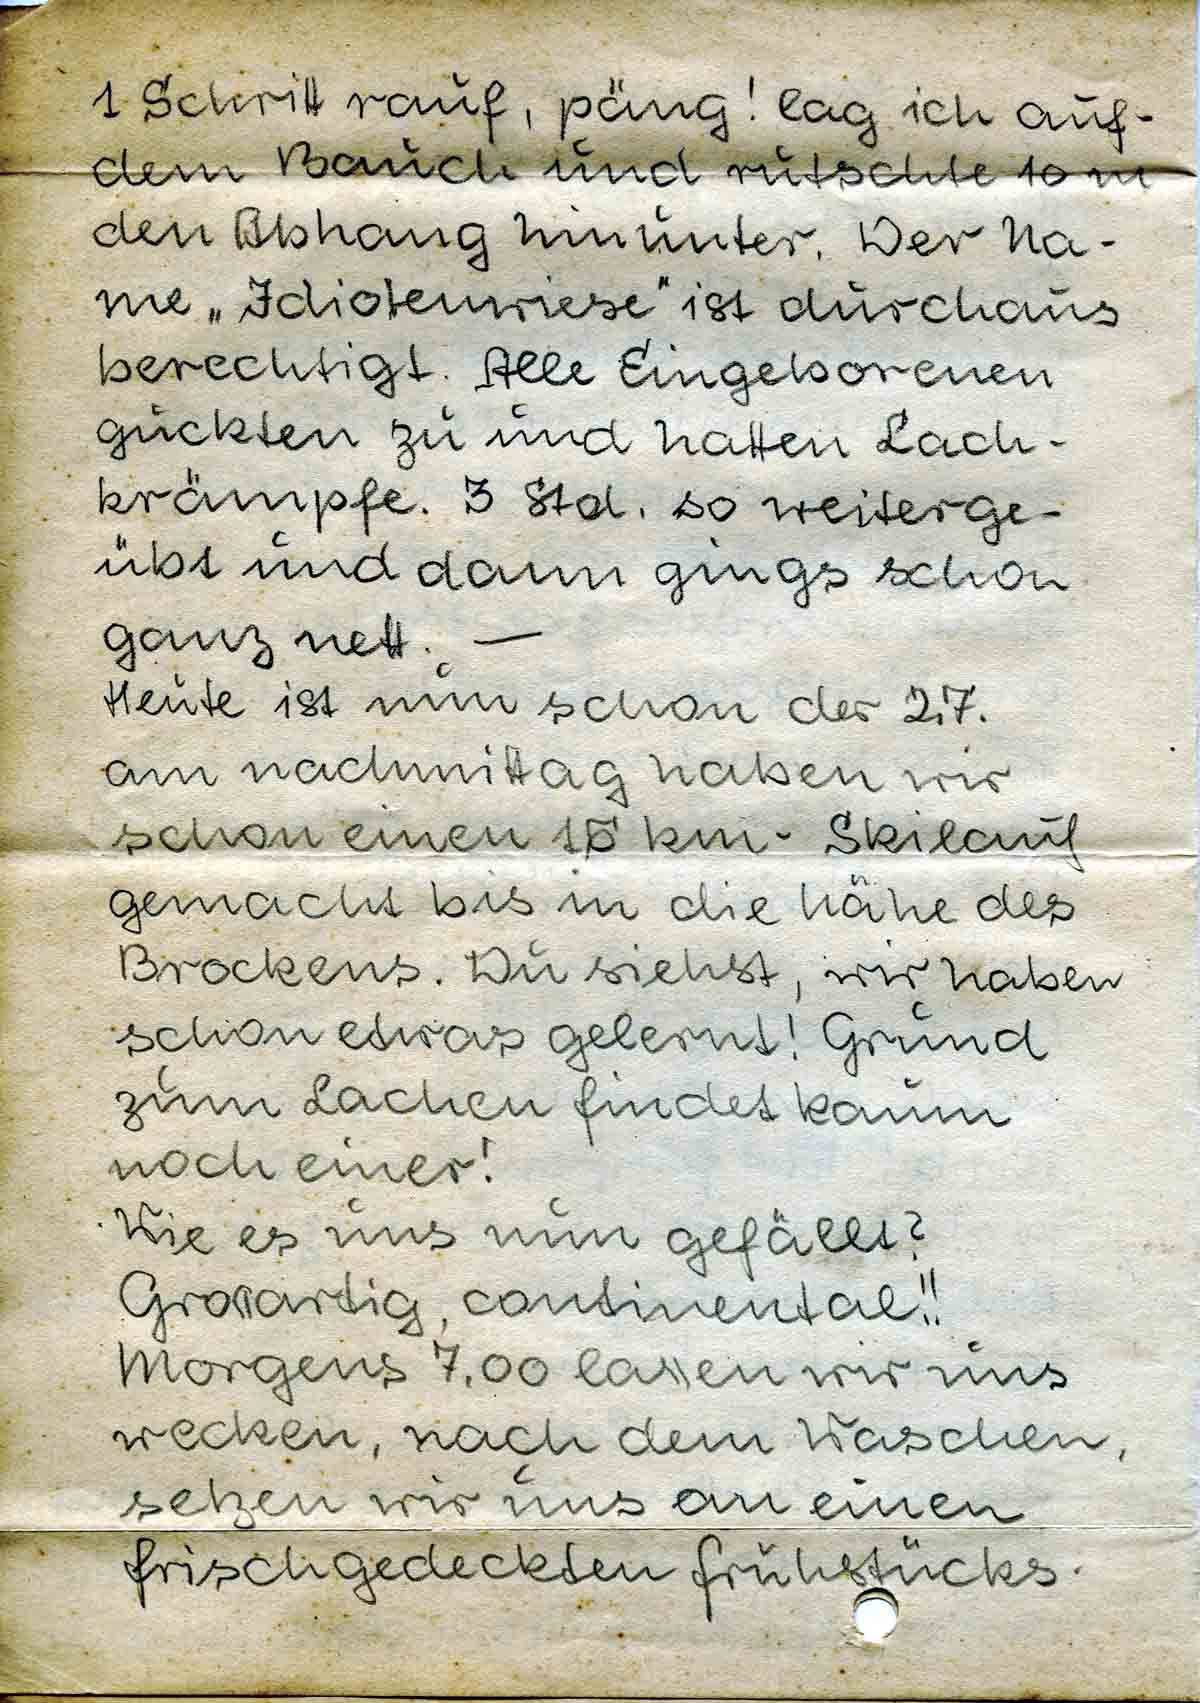 1 Schritt rauf, päng! lag ich auf-
dem Bauch und rutschte 10 m
den Abhang hinunter. Der Na-
me „Idiotenwiese“ ist durchaus
berechtigt. Alle Eingeborenen
guckten zu und hatten Lach-
krämpfe. 3 Std. so weiterge-
übt und dann gings schon
ganz nett. —
Heute ist nun schon der 2.7.
am nachmittag haben wir
schon einen 15 km- Skilauf
gemacht bis in die Nähe des
Brockens. Du siehst, wir haben
schon etwas gelernt! Grund
zum Lachen findet kaum
noch einer!
Wie es uns nun gefällt?
Grossartig, continental!!
Morgens 7.00 lassen wir uns
wecken, nach dem Waschen,
setzen wir uns an einen
frischgedeckten Frühstücks-